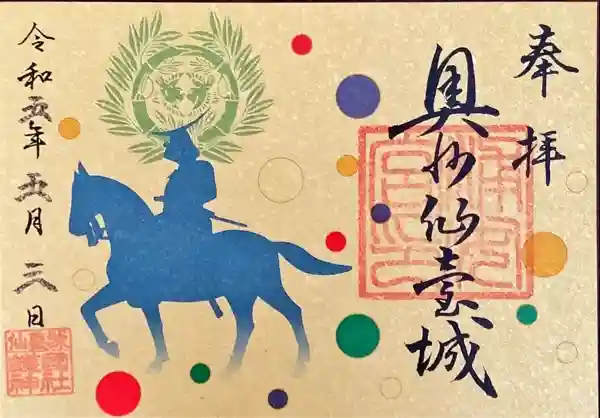 奉拝
奥州仙臺城
令和五年五月三日